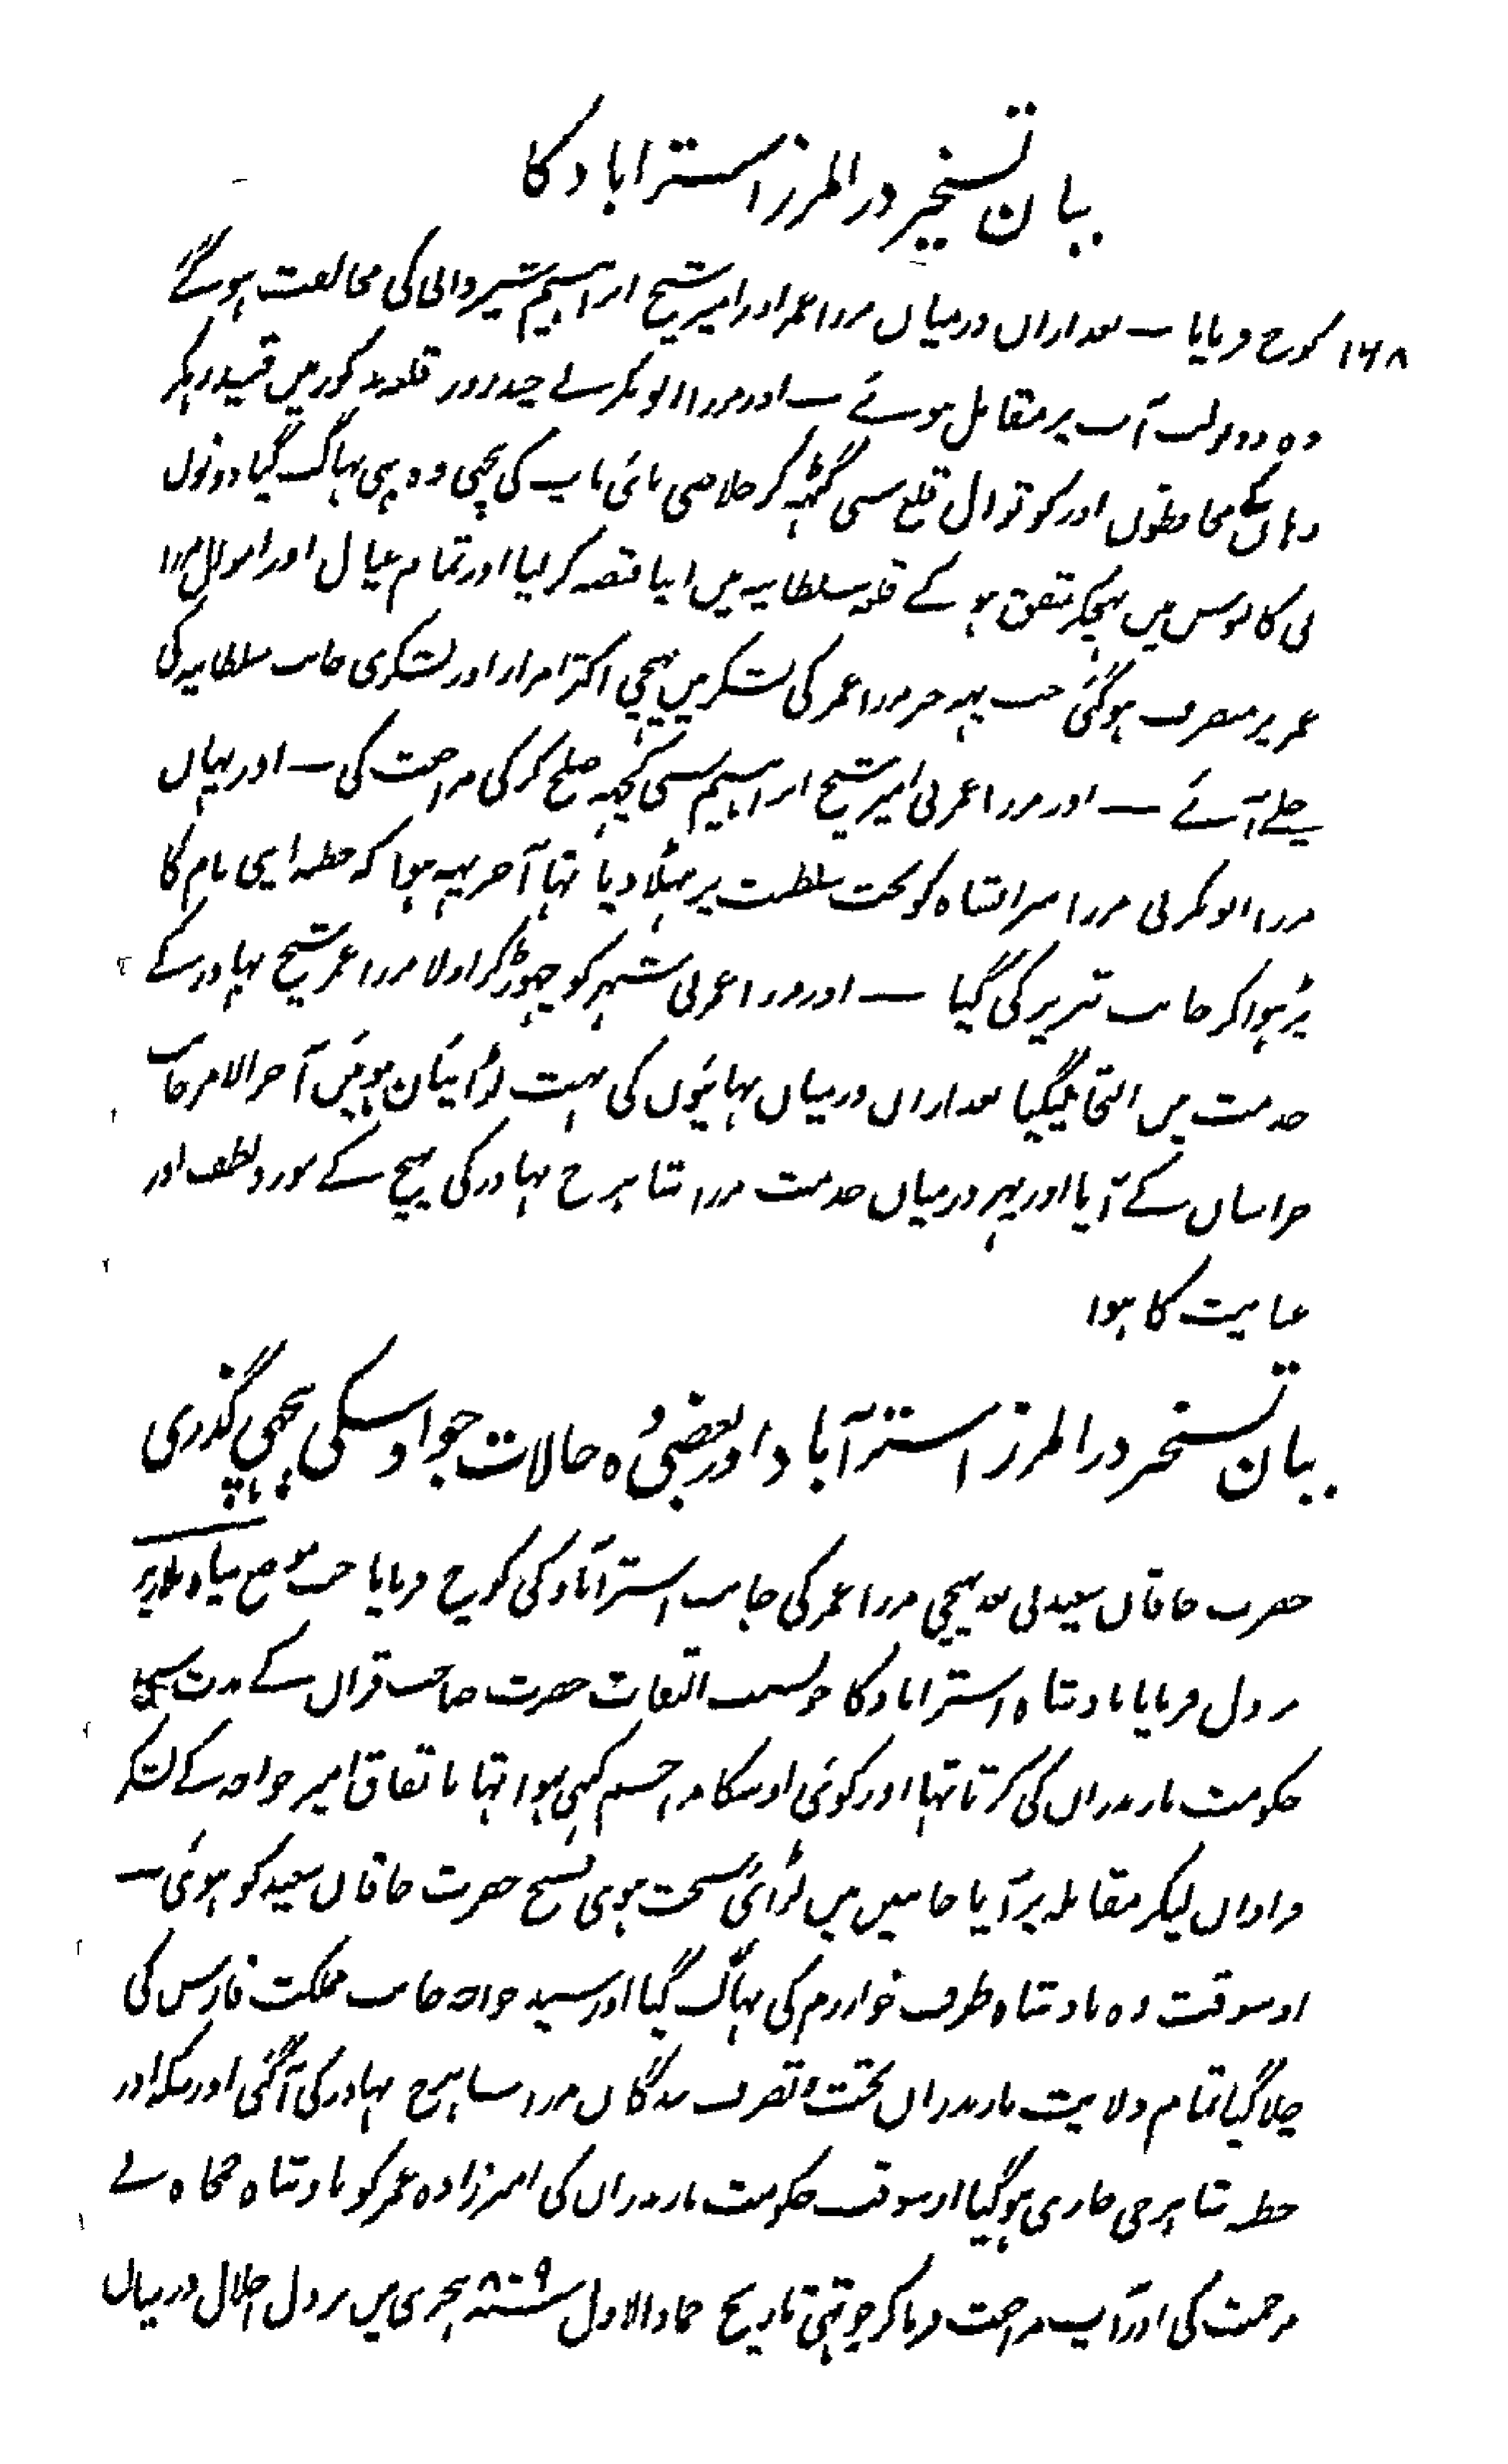 بیان تسخیر در المرز استراباد کا
۱۶۸ کوح فرمایا — بعد ازاں درمیاں مرزا عمر اور امیر شیخ ابراہیم شیروانی کی مخالفت ہوگے
وہ دونوں آب پر مقابل ہوئے — اور مرزا ابوبکر نے چند روز قلعہ مذکور میں قید رہکر
وہاں کے محافظوں اور کوتوال قلع سی گٹہہ کر خلاصی پائی باپ کی پیچہی وہ بہی بہاگ گیا دونوں
نی کالپوس میں پہنچکر متفق ہو کے قلعہ سلطانیہ میں اپنا قبضہ کر لیا اور تمام عیال اور اموال مرزا
عمر پر متصرف ہو گئی جب یہہ خبر مرزا عمر کی لشکر میں پہنچی اکثر امراء اور لشکری جانب سلطانیہ کی
چلے آئے — اور مرزا عمر نی امیر شیخ ابراہیم سی کچہہ صلح کر کی مراجعت کی — اور یہاں
مرزا ابوبکر نی مرزا میرانشاہ کو تخت سلطنت پر بہٹلا دیا تہا آخر یہہ ہوا کہ خطبہ اپنی نام کا
پڑہوا کر جانب تبریز کی گیا — اور مرزا عمر نی شہر کو چہوڑ کر اولا مرزا عمر شیخ بہادر کے
خدمت میں التجا لیگیا بعد ازاں درمیاں بہائیوں کی بہت لڑائیاں ہوئیں آخر الامر جانب
خراساں کے آیا اور پہر درمیاں خدمت مرزا شاہرخ بہادر کی پہنچ کے مورد لطف اور
عنایت کا ہوا
بیان تسخیر در المرز استرآباد اور بعضی وُہ حالات جو اوسکی پیچہی گذری
حضرت خاقان سعید نی بعد بہیجی مرزا عمر کی جانب استرآباد کی کوچ فرمایا جب موضع سیاہ بلا پر
نزول فرمایا بادشاہ استراباد کا جو بسبب التفات حضرت صاحب قران کے مدت سی
حکومت مازندراں کی کرتا تہا اور کوئی اوسکا مزاحم نہی ہوا تہا باتفاق امیر خواجہ کے لشکر
فراواں لیکر مقابلہ پر آیا جانبین میں لڑائی سخت ہوی فتح حضرت خاقان سعید کو ہوئی —
اوسوقت وہ بادشاہ طرف خوارزم کی بہاگ گیا اور سید خواجہ جانب مملکت فارس کی
چلا گیا تمام ولایت مازندراں تحت و تصرف بندگاں مرزا شاہرخ بہادر کی آگئی اور سکہ اور
خطبہ شاہرخی جاری ہو گیا اوسوقت حکومت مازندراں کی امیرزادہ عمر کو بادشاہ جمجاہ نے
مرحمت کی اور آپ مراجعت فرما کر چوتہی تاریخ جماد الاول سنہ ۸۰۹ ہجری میں نزول اجلال درمیان